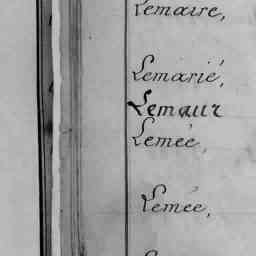 Lemaire,
Lemarié,
Lemaur
Lemée,
Lemée,